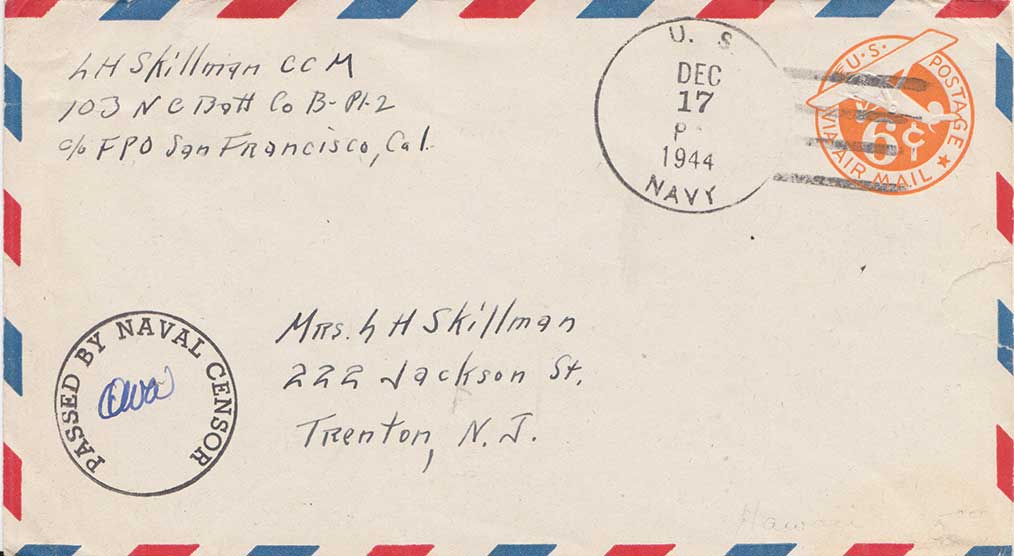 L H Skillman CCM
103 N C Batt Co B- Pt-2
c/o FPO San Francisco, Cal.
U. S
DEC
17
P
1944
NAVY
U.S. POSTAGE
6¢
VIA AIR MAIL
PASSED BY NAVAL CENSOR
Mrs. L H Skillman
222 Jackson St.
Trenton, N. J.
Hawaii